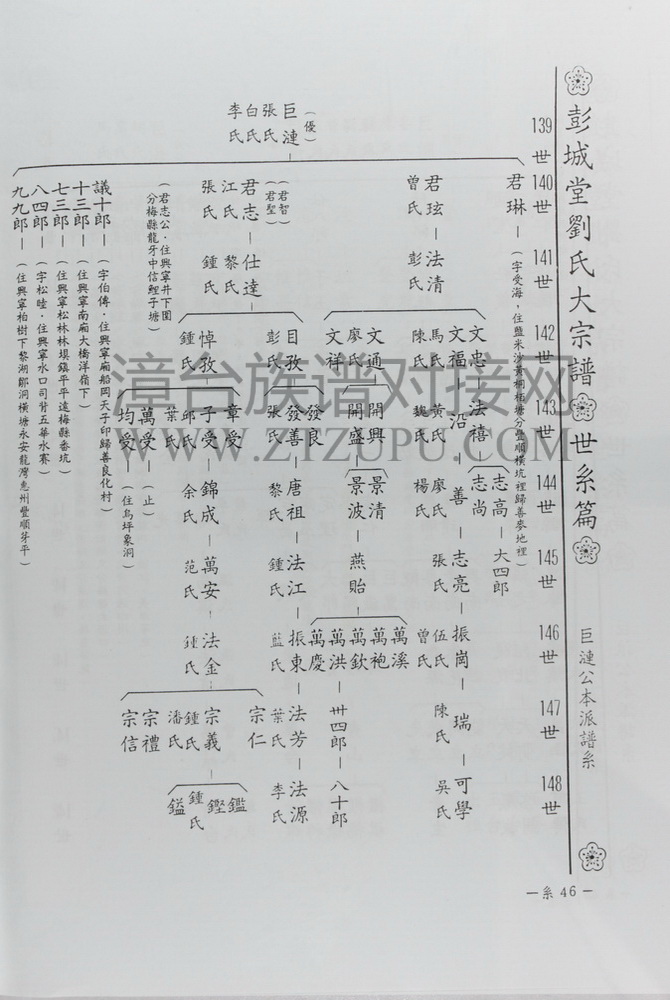 彭城堂劉氏大宗譜 世系篇
巨漣公本派譜系
—系 46—
139世
140世
141世
142世
143世
144世
145世
146世
147世
148世
巨漣(優)
張氏
白氏
李氏
君琳—(字受海，住鹽米沙黃桐柘塘分豐順橫坑裡歸善麥地裡)
君玹—法清
曾氏 彭氏
文忠—法禧
志高—大四郎
志尚
文福—沿—善—志亮—振崗—瑞—可學
馬氏 黃氏 廖氏 張氏 伍氏 陳氏 吳氏
陳氏 魏氏 楊氏 曾氏
文通
廖氏
文祥
開興
開盛
景清
景波—燕貽
萬溪
萬袍
萬欽
萬洪—卅四郎—八十郎
萬慶
(君智)
(君聖)
君志—仕達
江氏 黎氏
張氏 鍾氏
(君志公，住興寧井下圍
分梅縣龍牙中信鯉子塘)
目孜
彭氏
發良
發善—唐祖—法江—振東—法芳—法源
張氏 黎氏 鍾氏 藍氏 葉氏 李氏
悼孜
鍾氏
章受
子受—錦成—萬安—法金
邱氏 余氏 范氏 鍾氏
葉氏
萬受—(止)
均受—(住烏坪象洞)
宗仁
宗義
鍾氏
潘氏
宗禮
宗信
鑑
鏗
鍾氏
鎰
議十郎—(字伯傳，住興寧廂船岡天子印歸善良化村)
十三郎—(住興寧南廂大橋洋嶺下)
七三郎—(住興寧松林林垻鎮平平遠梅縣畬坑)
八四郎—(字松睦，住興寧水口司背五華水寨)
九九郎—(住興寧柏樹下黎湖鄒洞橫塘永安龍灣惠州豐順芽平)
漳台族谱对接网
WWW.ZTZUPU.COM